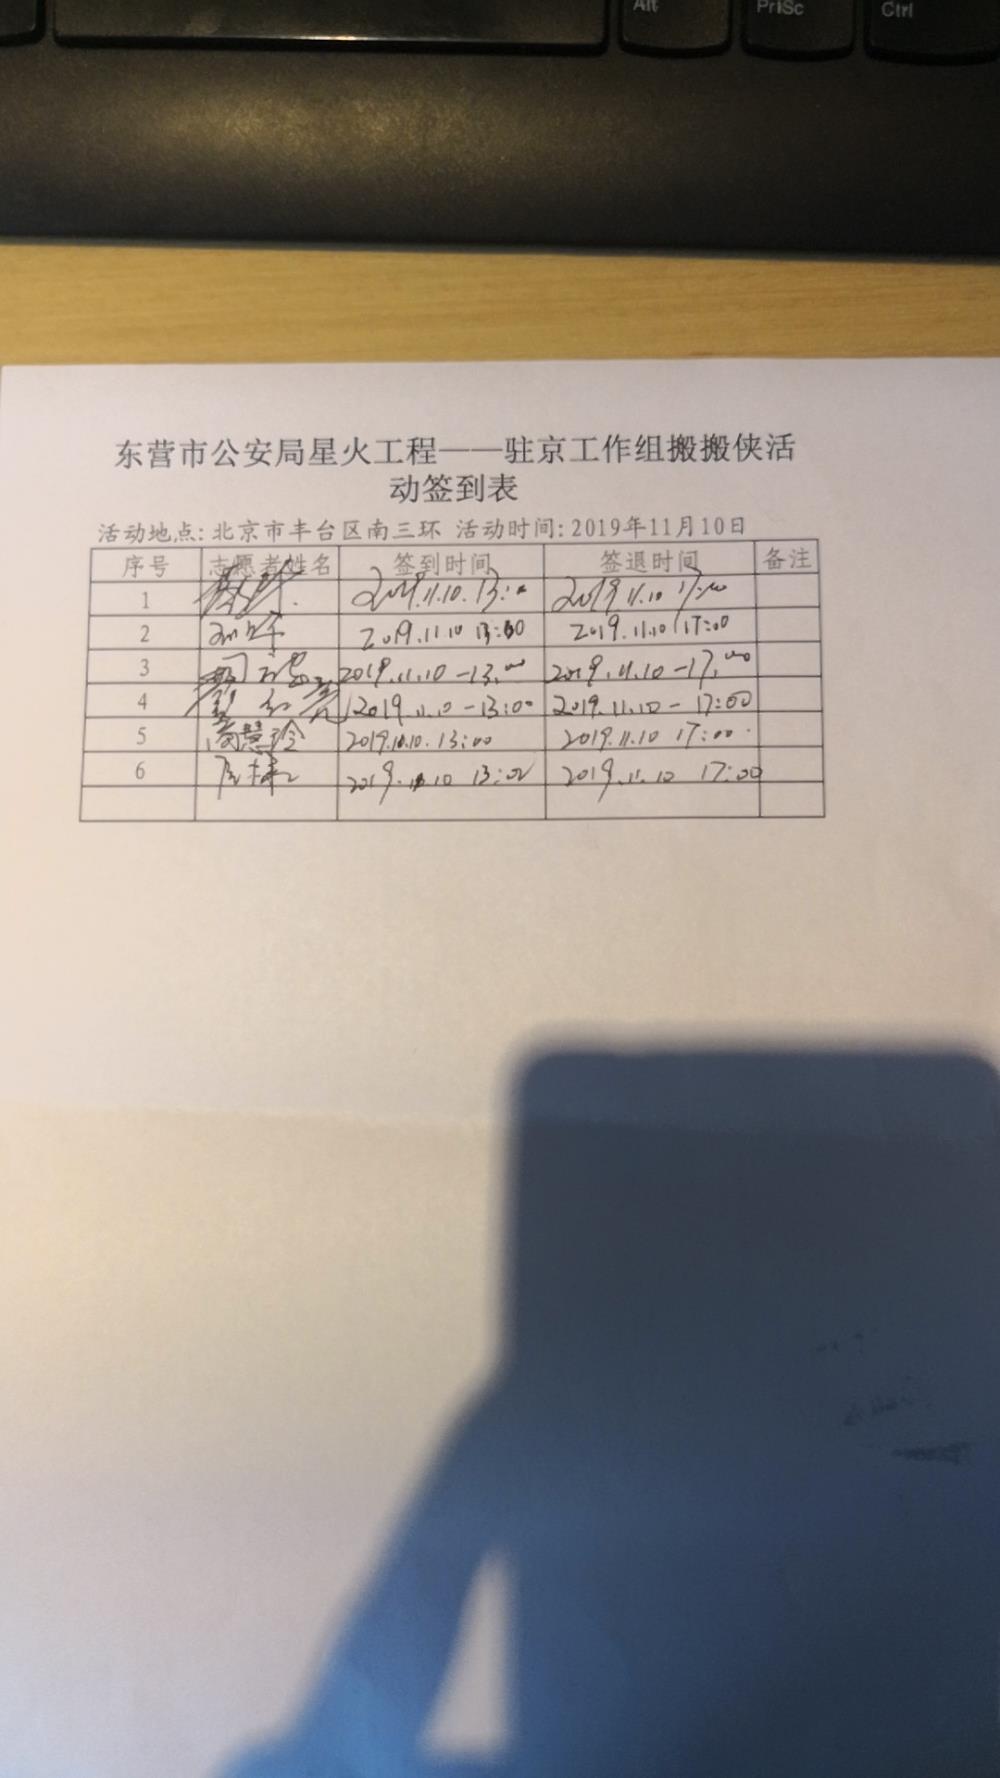 Alt PrtSc Ctrl
东营市公安局星火工程——驻京工作组搬搬侠活
动签到表
活动地点: 北京市丰台区南三环 活动时间: 2019年11月10日
序号 志愿者姓名 签到时间 签退时间 备注
1 2019.11.10. 13:00 2019 11.10 17:00
2 2019.11.10 13:00 2019.11.10 17:00
3 2019.11.10-13:00 2019.11.10-17:00
4 2019.11.10-13:00 2019.11.10-17:00
5 高慧玲 2019.10.10.13:00 2019.11.10 17:00
6 2019.11.10 13:00 2019.11.10 17:00